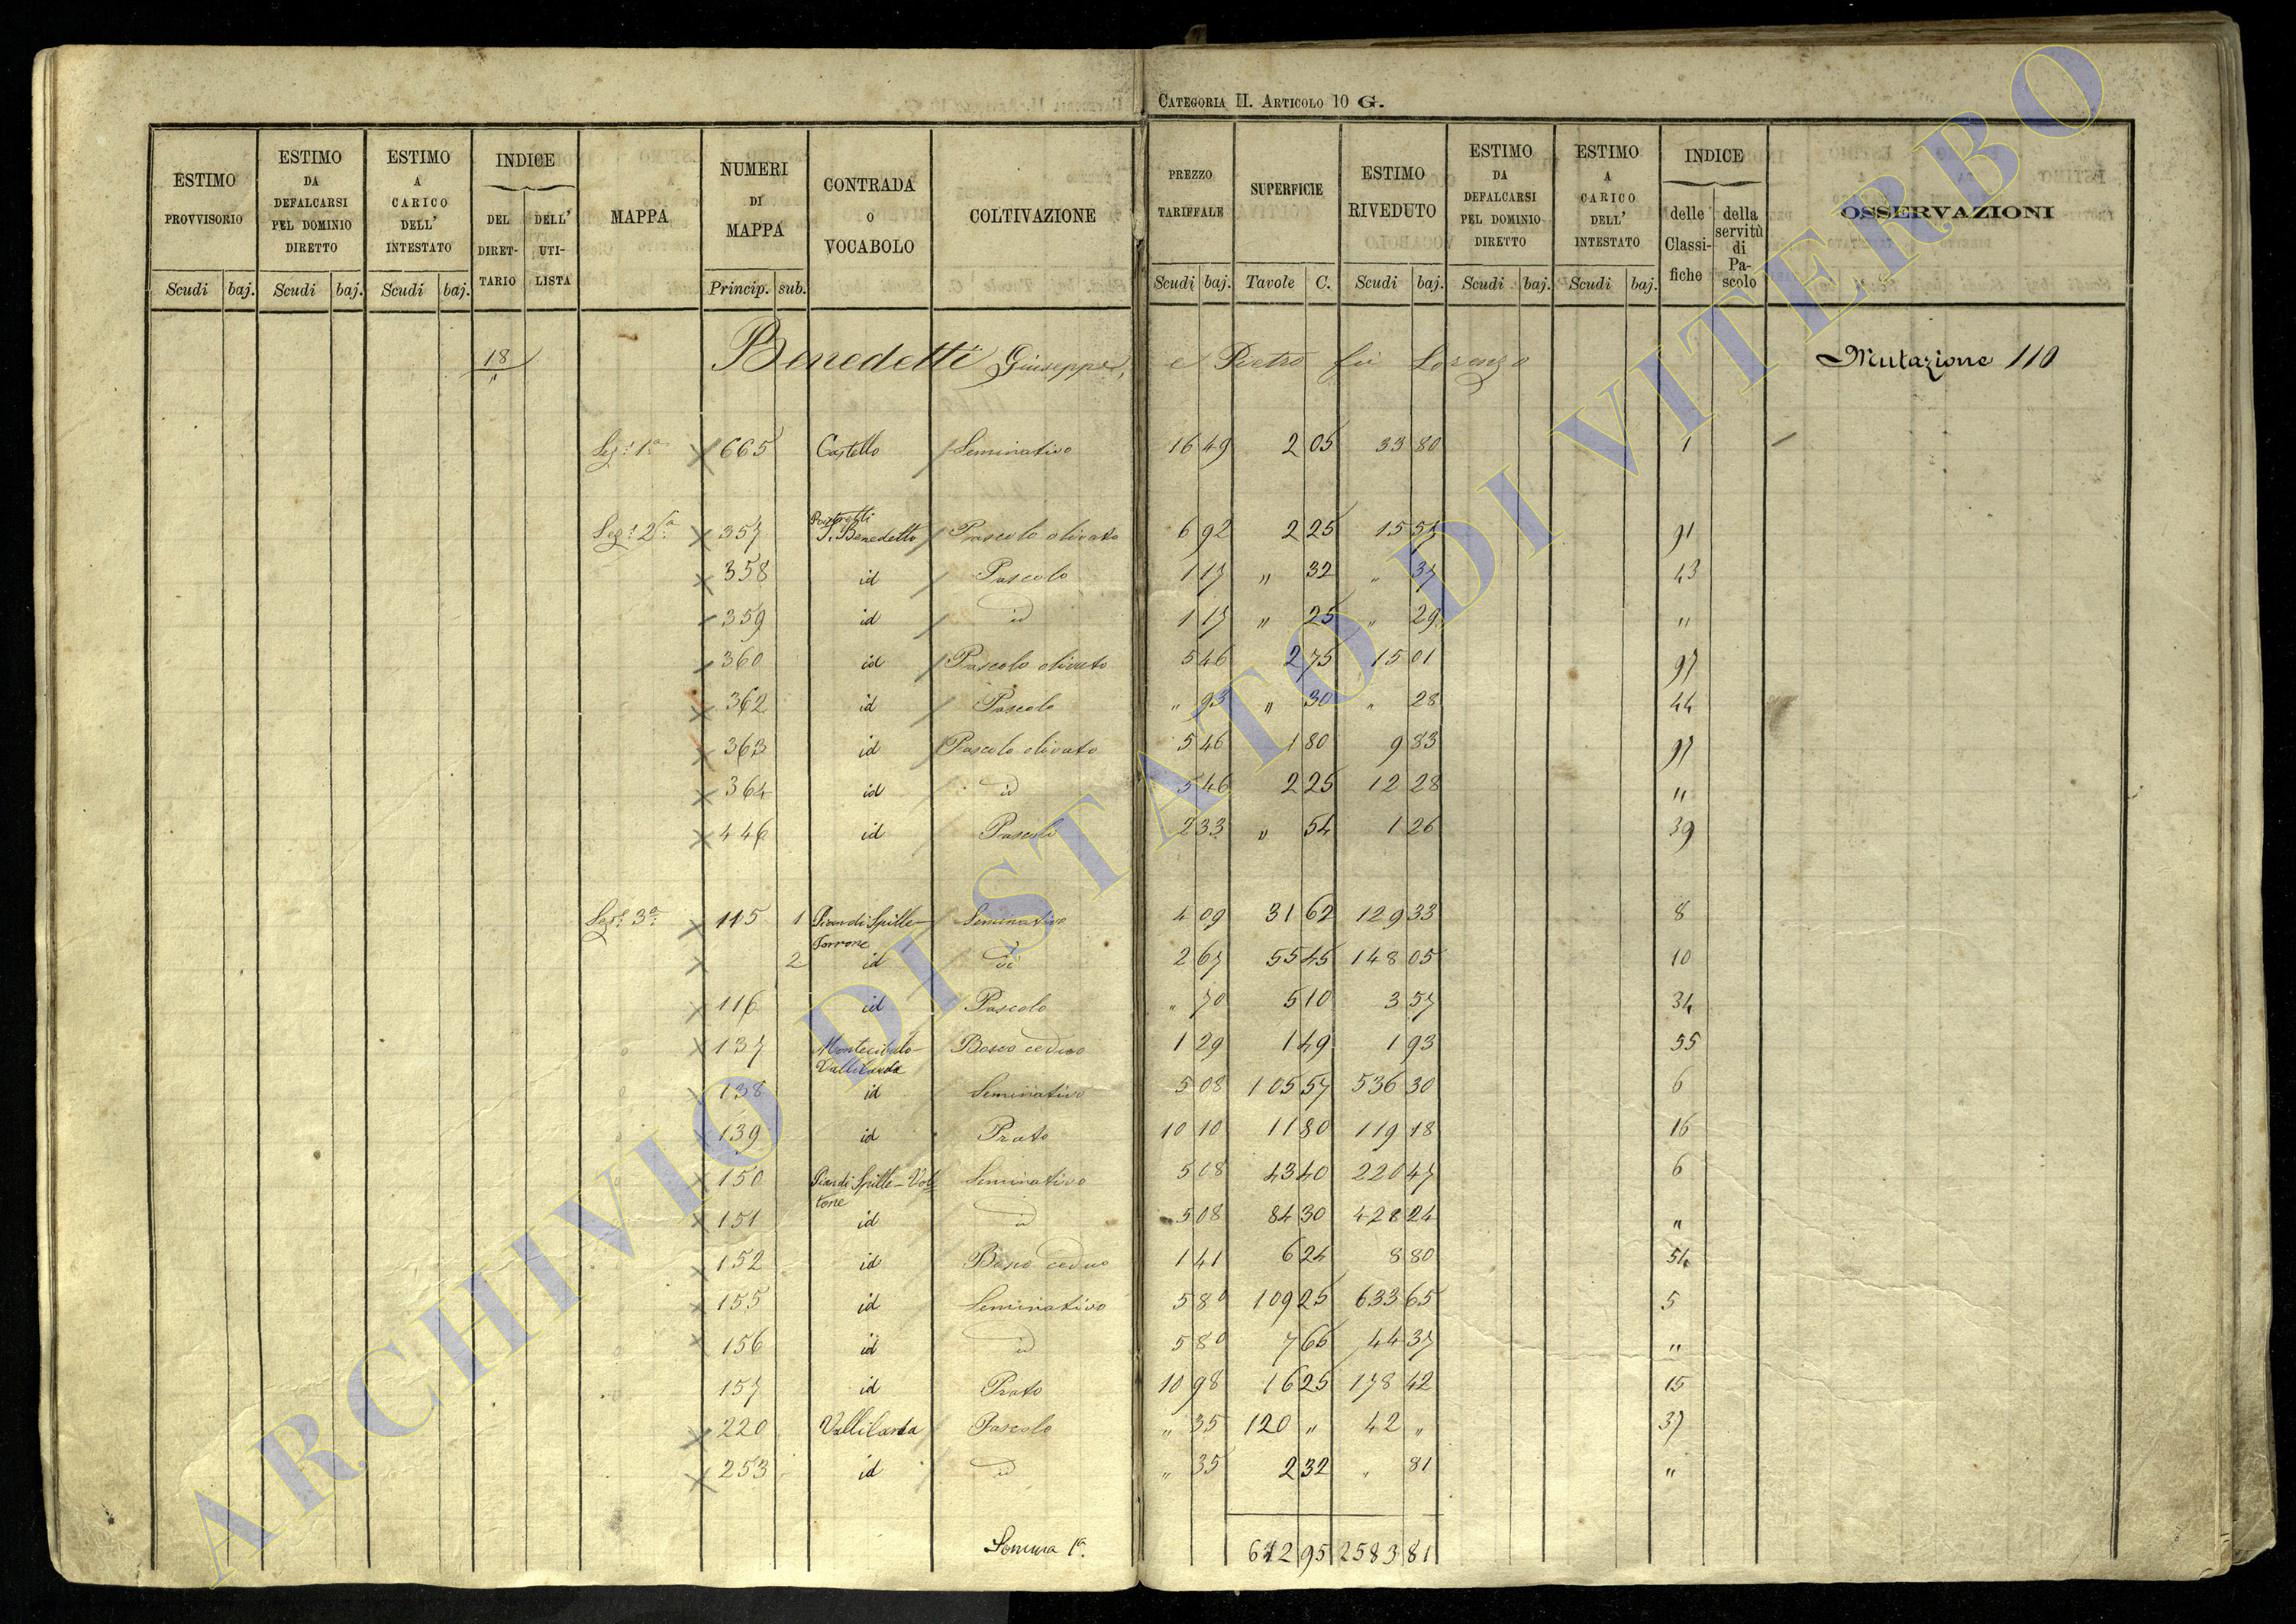 CATEGORIA II. ARTICOLO 10 G.
ESTIMO PROVVISORIO Scudi baj.
ESTIMO DA DEFALCARSI PEL DOMINIO DIRETTO Scudi baj.
ESTIMO A CARICO DELL' INTESTATO Scudi baj.
INDICE DEL DIRETTARIO DELL' UTILISTA
MAPPA
NUMERI DI MAPPA Princip. sub.
CONTRADA O VOCABOLO
COLTIVAZIONE
PREZZO TARIFFALE Scudi baj.
SUPERFICIE Tavole C.
ESTIMO RIVEDUTO Scudi baj.
ESTIMO DA DEFALCARSI PEL DOMINIO DIRETTO Scudi baj.
ESTIMO A CARICO DELL' INTESTATO Scudi baj.
INDICE delle Classifiche della servitù di Pascolo
OSSERVAZIONI
18 Benedetti Giuseppe, e Pietro fu Lorenzo Mutazione 110
"
Sez.e 1a 665 Castello Seminativo 16 49 2 05 33 80 1
Sez.e 2a 357 S. Benedetto Pascolo olivato 6 92 2 25 15 57 91
358 id Pascolo 1 17 " 32 " 37 43
359 id id 1 17 " 25 " 29 "
360 id Pascolo olivato 5 46 2 75 15 01 97
362 id Pascolo " 93 " 30 " 28 44
363 id Pascolo olivato 5 46 1 80 9 83 97
364 id id 5 46 2 25 12 28 "
446 id Pascolo 2 33 " 54 1 26 39
Sez.e 3a 115 1 Pian di Spille - Seminativo 4 09 31 62 129 33 8
Torrone
2 id id 2 67 55 45 148 05 10
116 id Pascolo " 70 5 10 3 57 34
137 Bosco ceduo 1 29 1 49 1 93 55
Vallilarda
138 id Seminativo 5 08 105 57 536 30 6
139 id Prato 10 10 11 80 119 18 16
150 Pian di Spille - Vol Seminativo 5 08 43 40 220 47 6
tone
151 id id 5 08 84 30 428 24 "
152 id Bosco ceduo 1 41 6 24 8 80 54
155 id Seminativo 5 80 109 25 633 65 5
156 id id 5 80 7 66 44 37 "
157 id Prato 10 98 16 25 178 42 15
220 Vallilarda Pascolo " 35 120 " 42 " 37
253 id id " 35 2 32 " 81 "
Somma 1a. 612 95 2583 81
ARCHIVIO DI STATO DI VITERBO